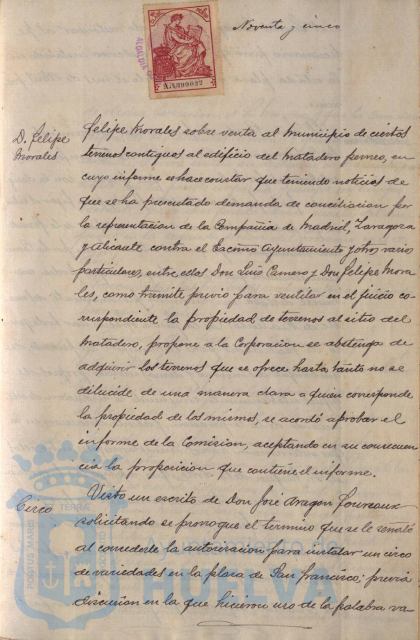 Noventa y cinco
A.A390032
D. Felipe
Morales
Felipe Morales sobre venta al Municipio de ciertos
terrenos contiguos al edificio del Matadero ferreo, en
cuyo informe se hace constar que teniendo noticias de
que se ha presentado demanda de conciliacion por
la representacion de la Compañia de Madrid, Zaragoza
y Alicante contra el Excmo Ayuntamiento y otros varios
particulares, entre ellos Don Luis Camero y Don Felipe Mora
les, como tramite previo para ventilar en el juicio co
rrespondiente la propiedad de terrenos al sitio del
Matadero, propone a la Corporacion se abstenga de
adquirir los terrenos que se ofrece hasta tanto no se
dilucide de una manera clara a quien corresponde
la propiedad de los mismos, se acordó aprobar el
informe de la Comision, aceptando en su consecuen
cia la proposicion que contiene el informe.
Circo
Visto un escrito de Don José Aragon
solicitando se prorrogue el termino que se le señaló
al concederle la autorizacion para instalar un circo
de variedades en la plaza de San Francisco; previa
discusion en la que hicieron uso de la palabra va-
PORTUS MARIS
TERRAE
Ayuntamiento de
HUELVA